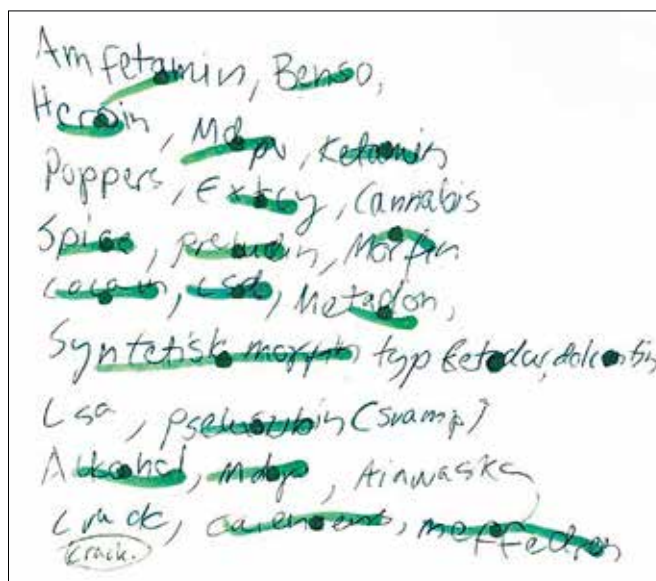 Amfetamin, Benso,
Heroin, Mdpv, Ketamin
Poppers, Extcy, Cannabis
Spice, preludin, Morfin
Cocain, LSD, Metadon,
Syntetisk morfin typ Ketodur, dolcontin
Lsa, (svamp)
Alkohol, Mdpv, Ainwaska
Crack, meffedron
Crack.